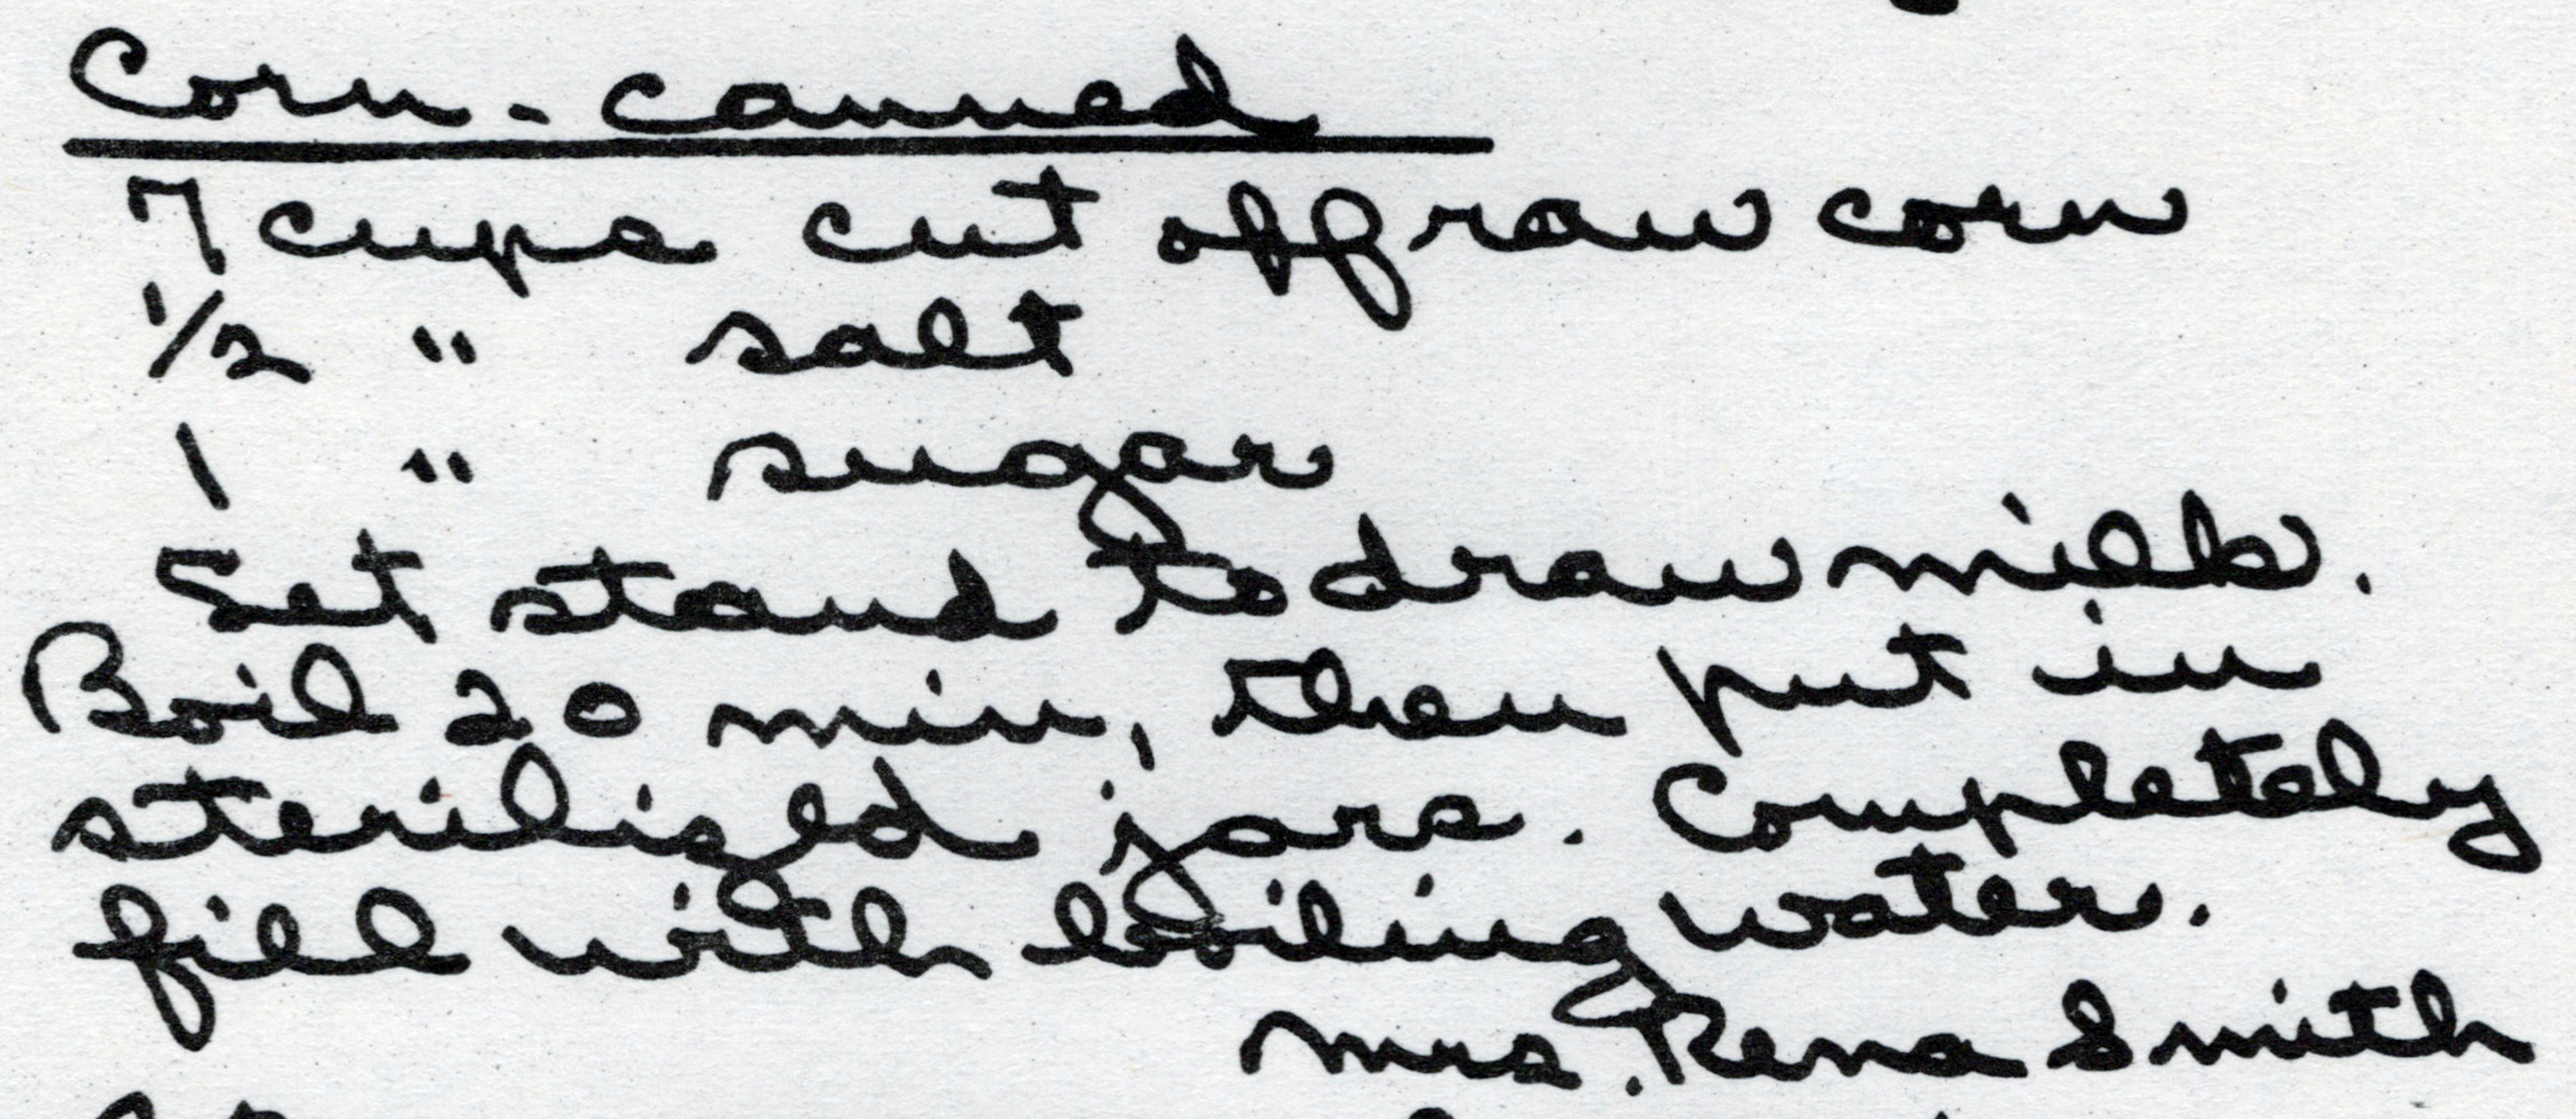 Corn - canned
7 cups cut off raw corn
1/2 " salt
1 " sugar
Set stand to draw milk.
Boil 20 min, then put in
sterilized jars. Completely
fill with boiling water.
Mrs. Rena Smith